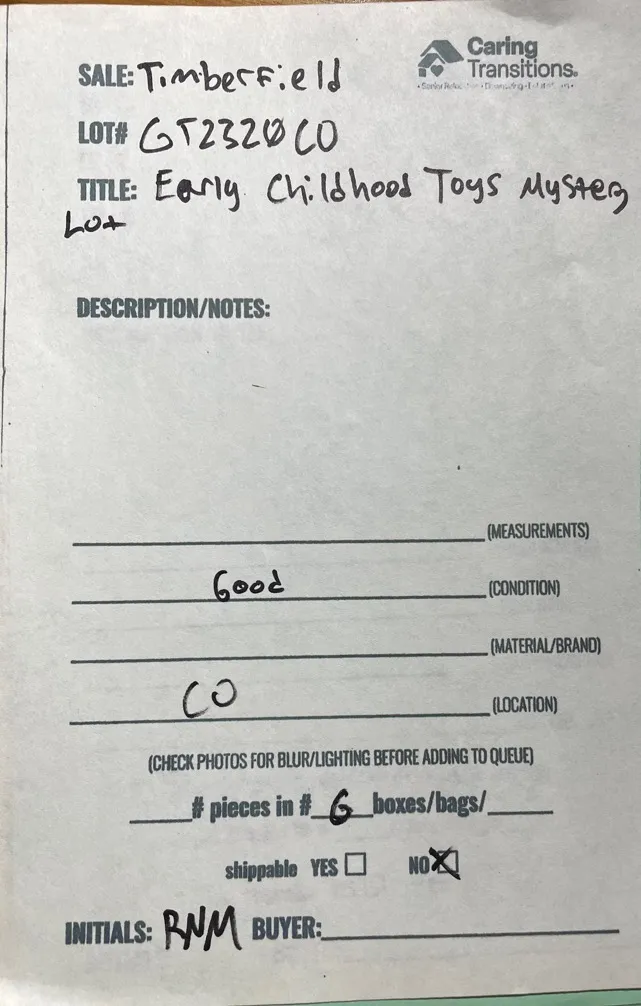 Caring
Transitions.
SALE: Timberfield
LOT# GT2320CO
TITLE: Early Childhood Toys Mystery
Lot
DESCRIPTION/NOTES:
(MEASUREMENTS)
Good (CONDITION)
(MATERIAL/BRAND)
CO (LOCATION)
(CHECK PHOTOS FOR BLUR/LIGHTING BEFORE ADDING TO QUEUE)
# pieces in # 6 boxes/bags/
shippable YES ☐ NO ☒
INITIALS: RNM BUYER: